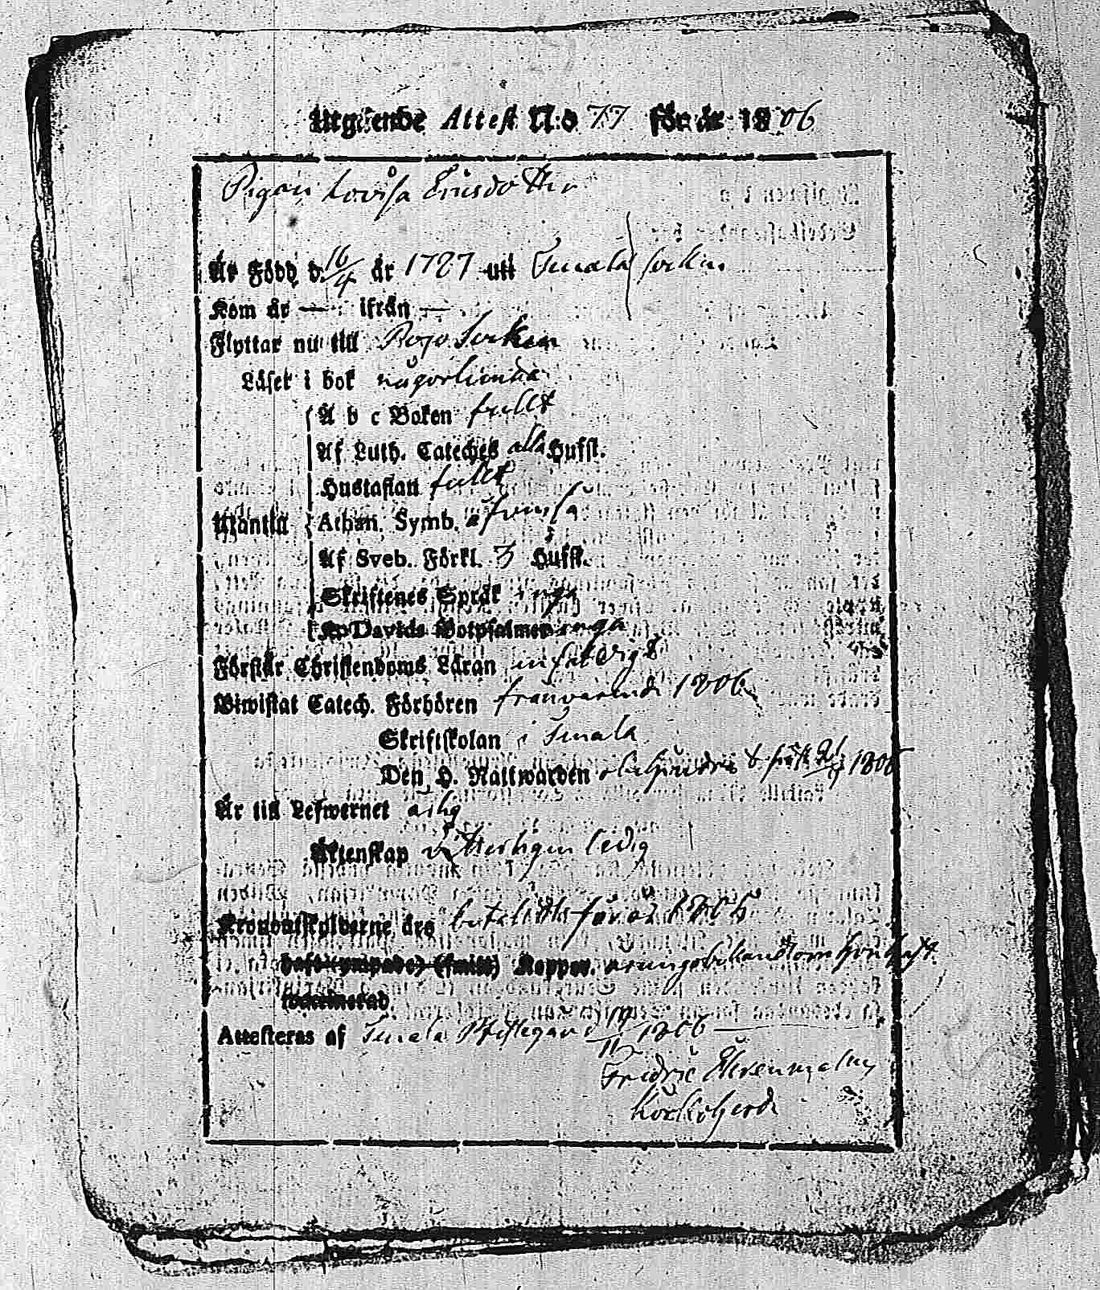 Utgående Attest N:o 77 för år 1806
Pigan Lovisa Ericsdotter
Är Född d. 16/4 år 1787 uti Tenala socken
Kom år — ifrån —
Flyttar nu till Pojo Socken
Läser i bok någorlunda
A b c Boken fullt
Af Luth. Cateches alla Hufst.
Hustaflan fullt
Utantill Athan. Symb. äfvenså
Af Sveb. Förkl. 3 Hufst.
Skriftenes Språk inga
Af Davids Botpsalmer inga
Förstår Christendoms Läran enfaldigt
Biwistat Catech. Förhören frånvarande 1806
Skriftskolan i Tenala
Den H. Nattwarden obehindrad & sist 1806
Är till Lefwernet ärlig
Ägtenskap veterligen ledig
Kronoutskylderne äro betalde för år 1806
haft (ympade) (smitt) Koppor.
waccinerad
Attesteras af Tenala Prestegård 1806
Fredric Ehrenmalm
Kyrkoherde